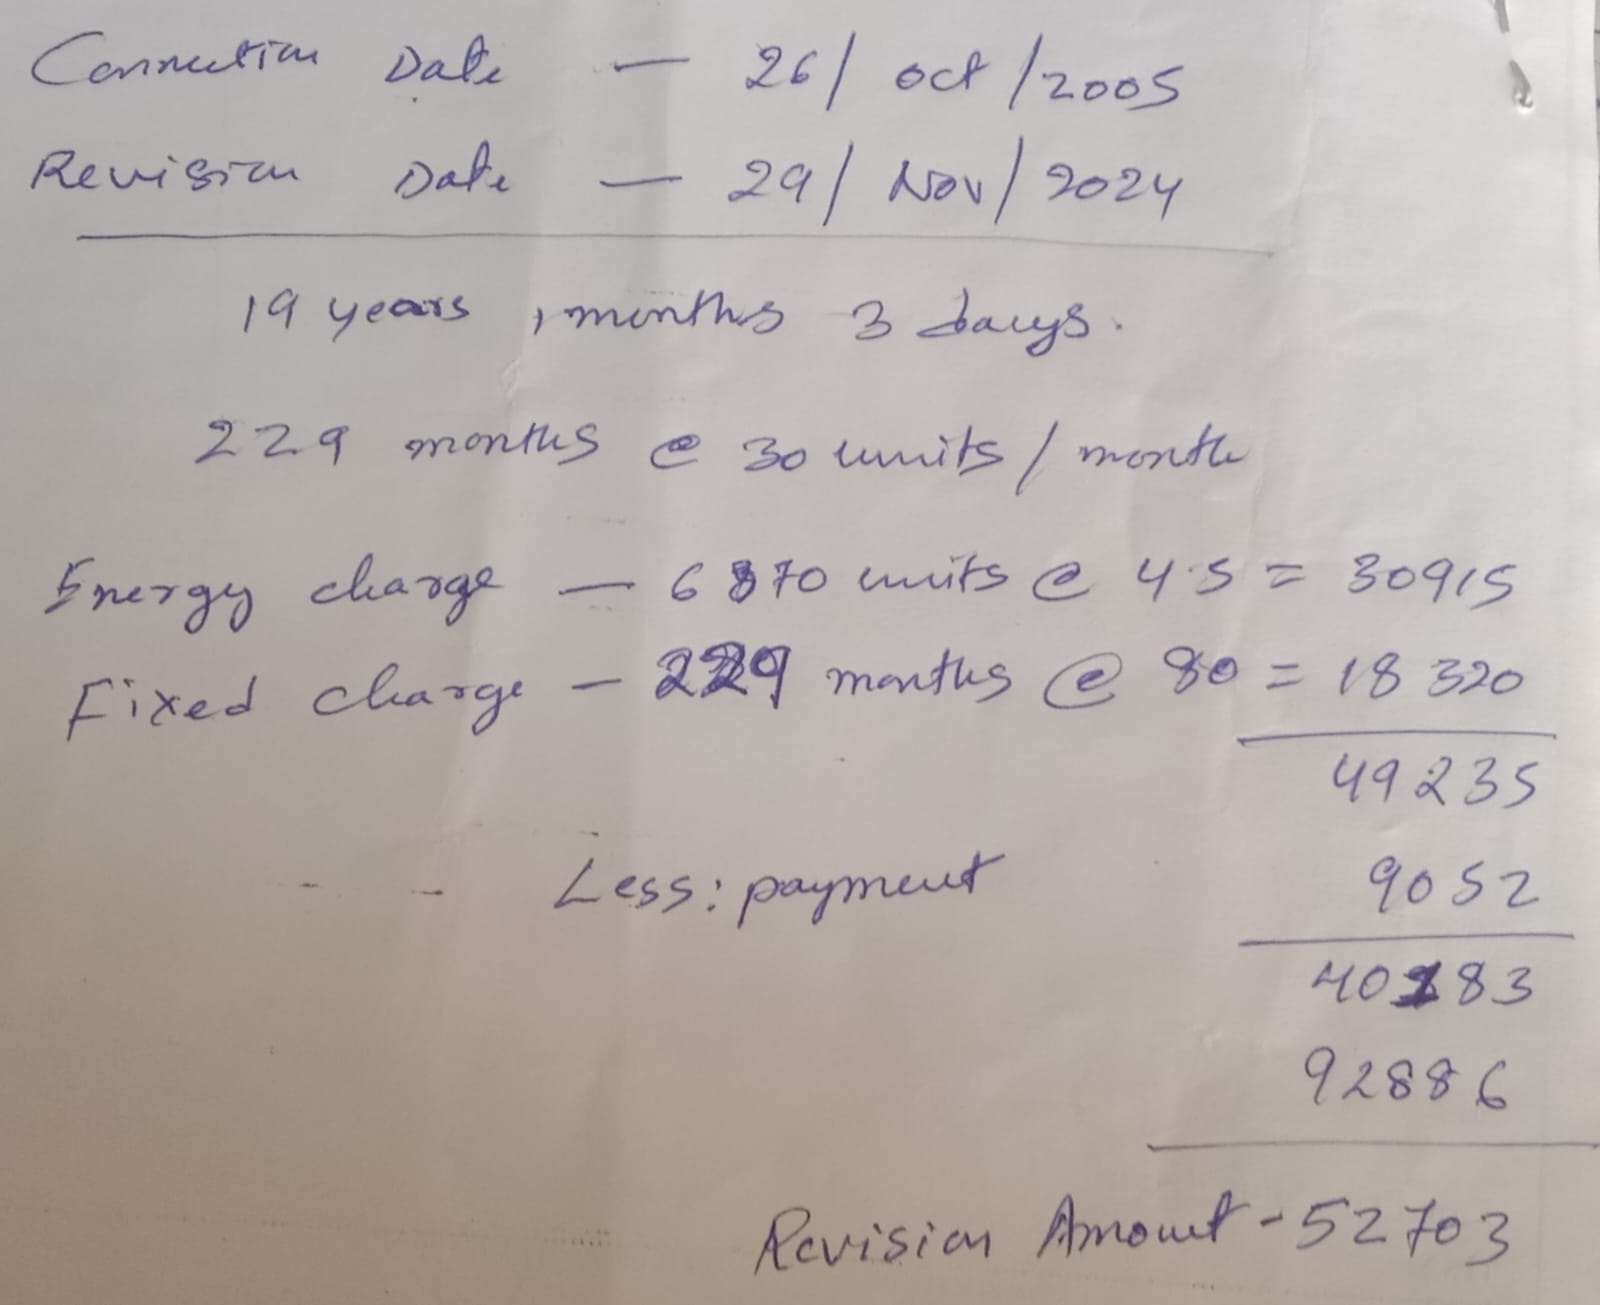 Connection Date — 26/ oct /2005
Revision Date — 29/ Nov/ 2024
19 years 1 months 3 days.
229 months @ 30 units / month
Energy charge — 6870 units @ 4.5 = 30915
Fixed charge — 229 months @ 80 = 18320
49235
Less: payment 9052
40183
92886
Revision Amount - 52703